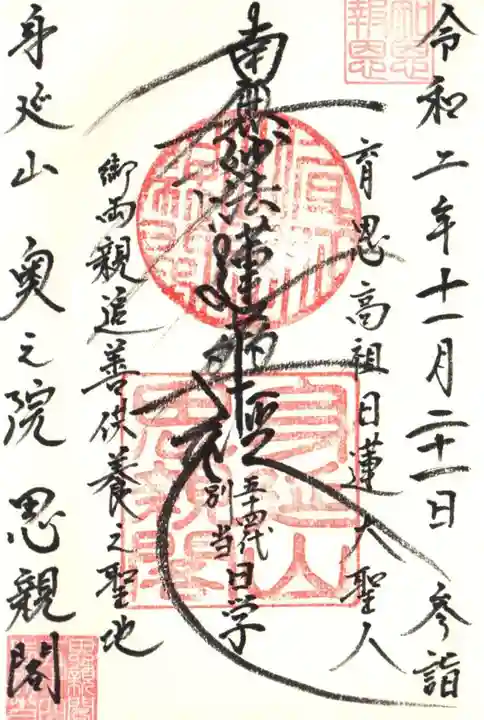 令和二年十一月二十一日 参詣
知恩
報恩
育恩高祖日蓮大聖人
南無妙法蓮華経
五十四代
別当 日学
身延山
思親閣
御両親追善供養之聖地
身延山 奥之院 思親閣